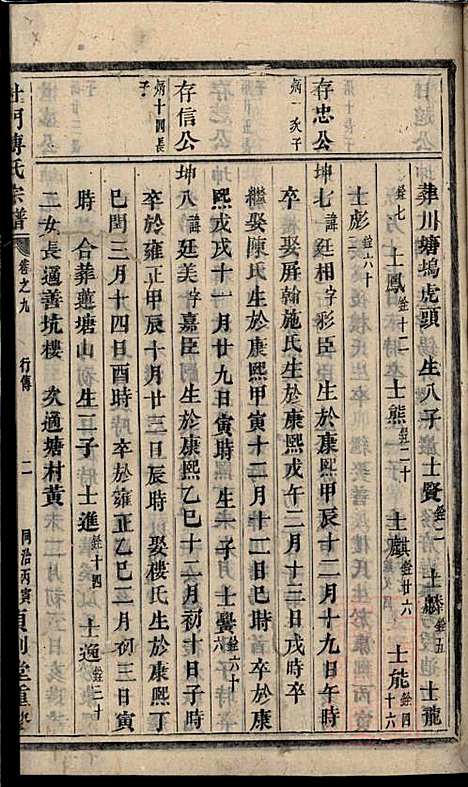 葬川塘塢虎頭 生八子 士賢銓二 士麟銓五 士龍
銓七 士鳳銓十二 士熊銓二十 士麒銓廿六 士能銓四十六
士彪銓六十
存忠公
炳一次子
坤七諱廷相字彩臣生於康熙甲辰十二月十九日午時
卒 娶屏翰施氏生於康熙戊午二月十三日子時 卒
繼娶陳氏生於康熙甲寅十二月十二日巳時 卒於康
熙戊戌十一月廿九日寅時 生一子 士爨銓六十
存信公
炳十四長子
坤八諱廷美字嘉臣生於康熙乙巳十二月初十日子時
卒於雍正甲辰十月廿三日辰時 娶樓氏生於康熙丁
巳閏三月十四日酉時 卒於雍正乙巳二月初三日寅
時 合葬蓮塘山 生二子 士進銓十四 士逸銓二十
二女長適善坑樓 次適塘村黃
杜門傅氏宗譜 卷之九 行傳 二 同治丙寅貞利堂重